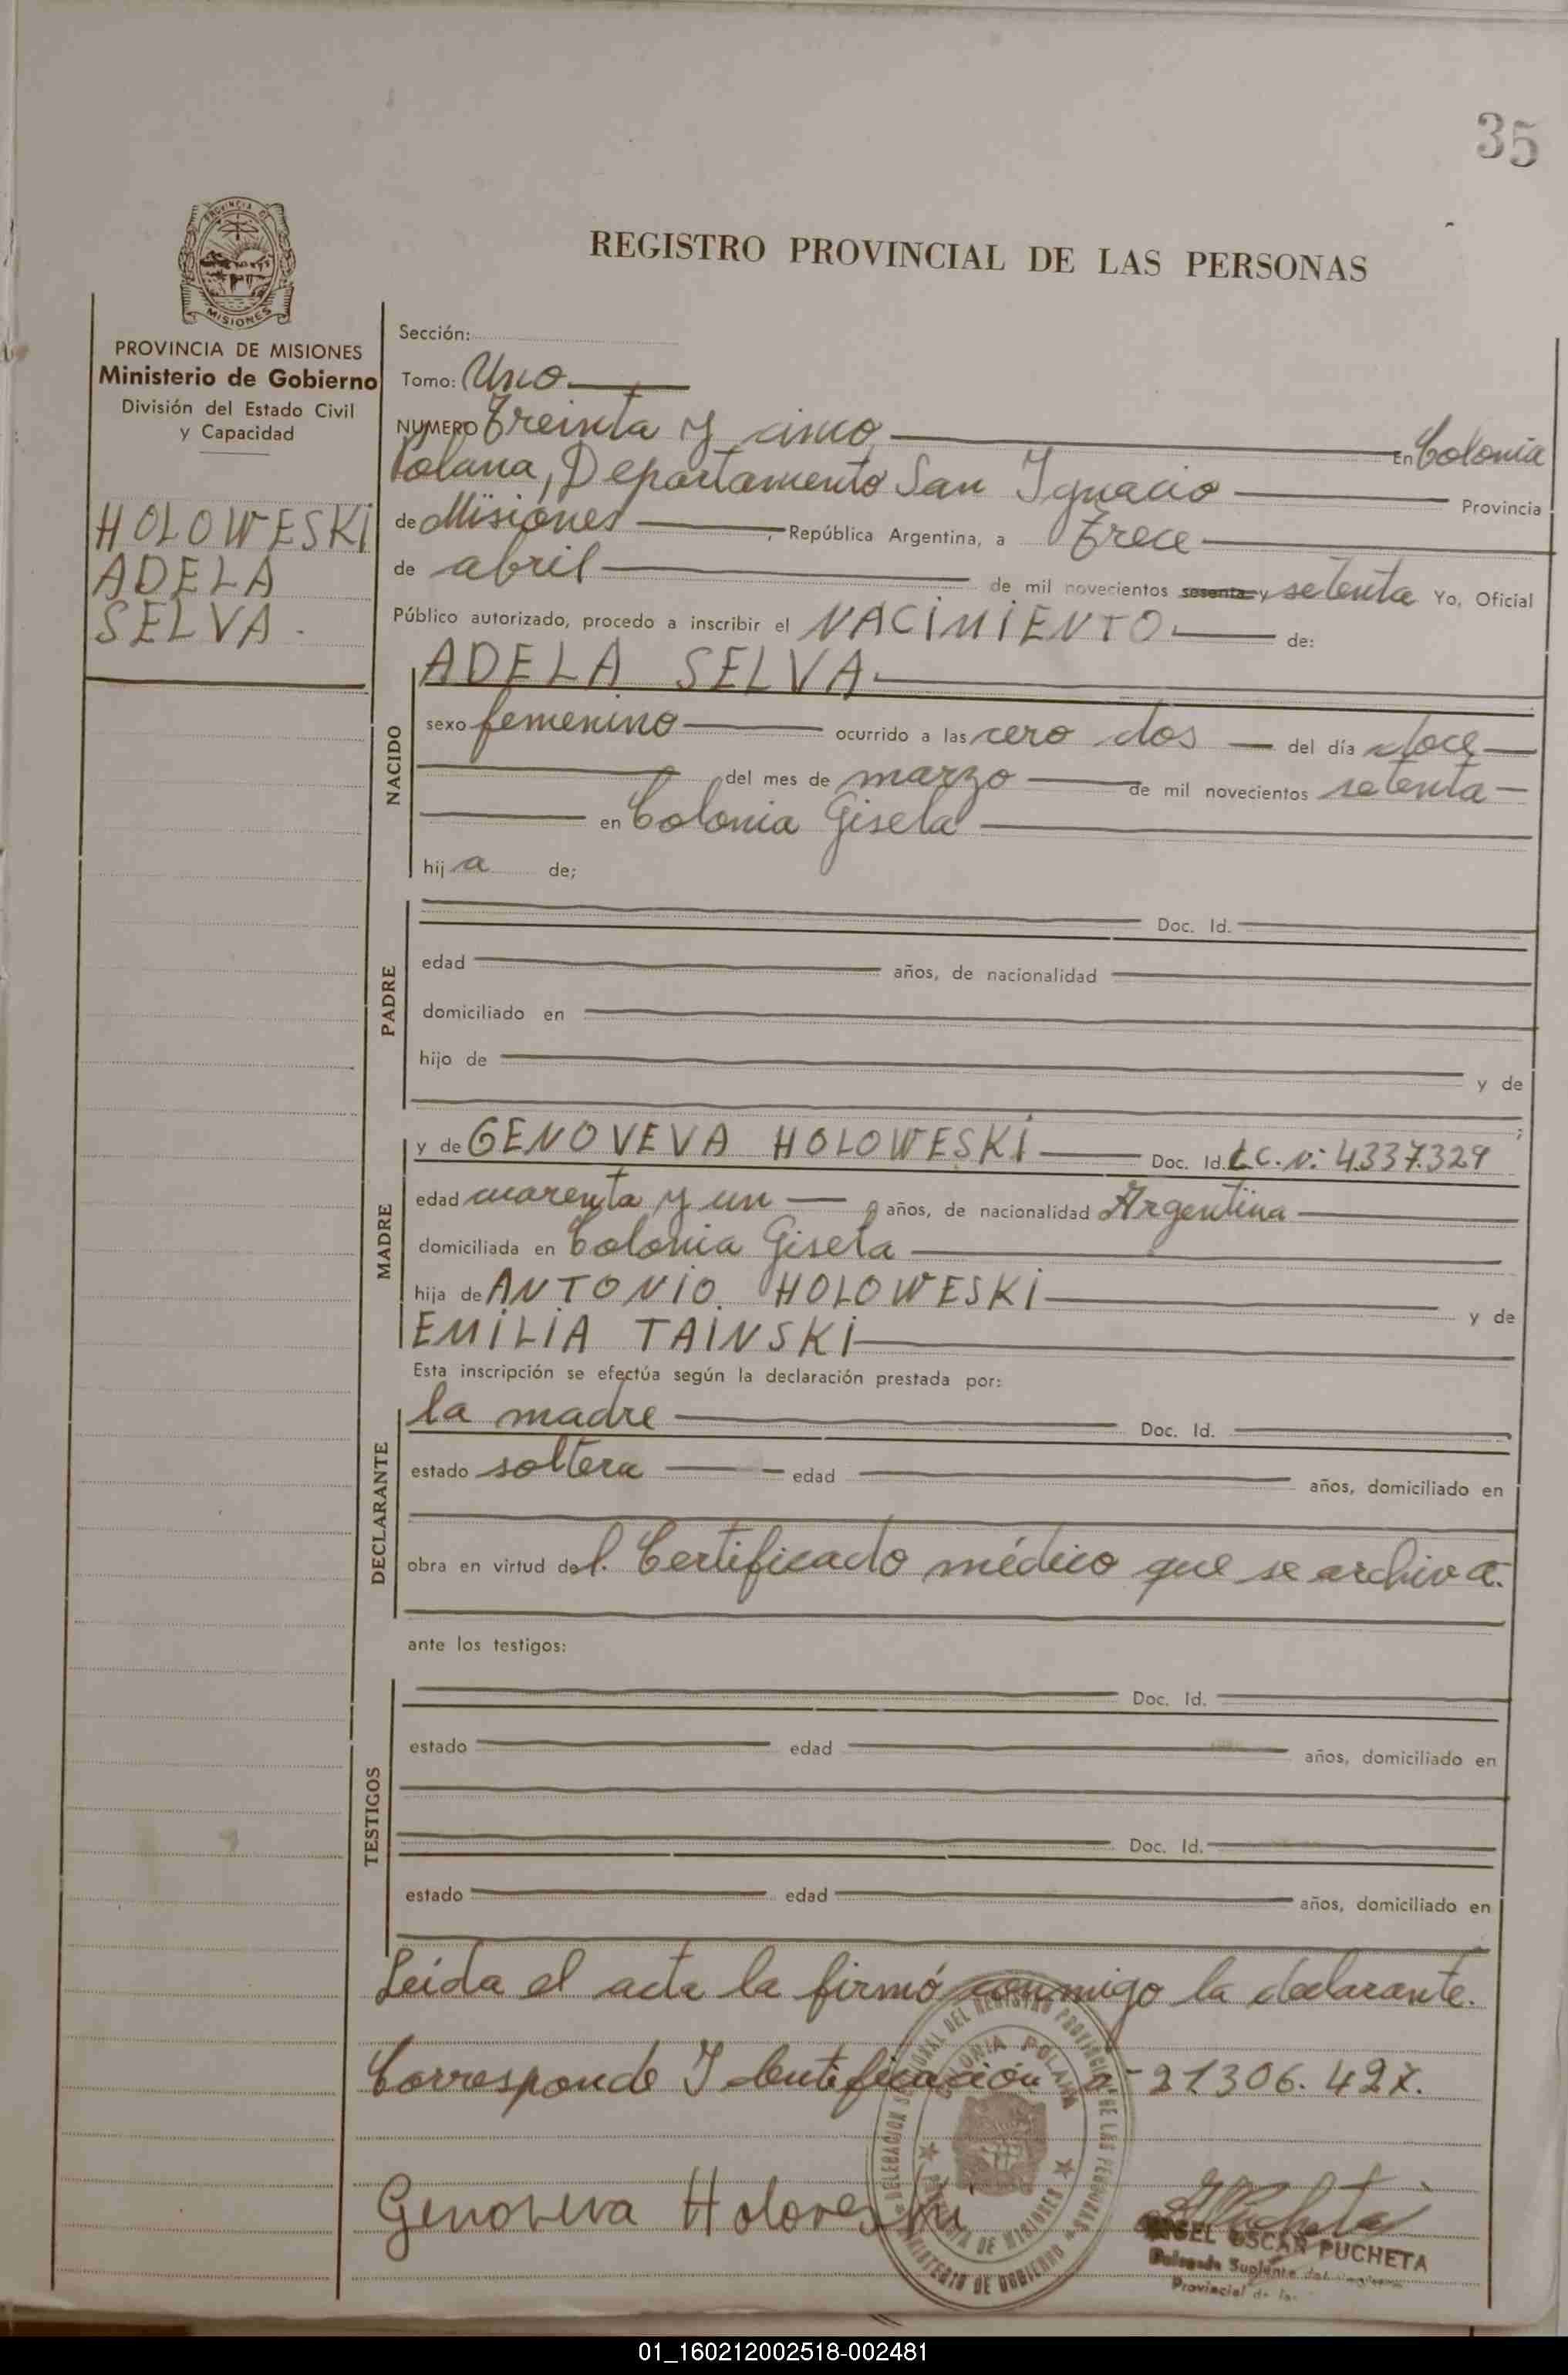 35
PROVINCIA DE
MISIONES
REGISTRO PROVINCIAL DE LAS PERSONAS
PROVINCIA DE MISIONES
Ministerio de Gobierno
División del Estado Civil
y Capacidad
HOLOWESKI
ADELA
SELVA.
Sección:
Tomo: Uno
NUMERO Treinta y cinco En Colonia
Polana, Departamento San Ignacio Provincia
de Misiones, República Argentina, a Trece
de abril de mil novecientos sesenta y setenta Yo, Oficial
Público autorizado, procedo a inscribir el NACIMIENTO de:
NACIDO
ADELA SELVA.
sexo femenino ocurrido a las cero dos del día doce
del mes de marzo de mil novecientos setenta
en Colonia Gisela
hija de;
PADRE
Doc. Id.
edad años, de nacionalidad
domiciliado en
hijo de y de
;
MADRE
y de GENOVEVA HOLOWESKI Doc. Id. L.C. N: 4.337.329
edad cuarenta y un años, de nacionalidad Argentina
domiciliada en Colonia Gisela
hija de ANTONIO HOLOWESKI y de
EMILIA TAINSKI
Esta inscripción se efectúa según la declaración prestada por:
DECLARANTE
la madre Doc. Id.
estado soltera edad años, domiciliado en
obra en virtud del. Certificado médico que se archiva.
ante los testigos:
TESTIGOS
Doc. Id.
estado edad años, domiciliado en
Doc. Id.
estado edad años, domiciliado en
Leida el acta la firmó conmigo la declarante.
Corresponde Identificación n° 21.306.427.
DELEGACION SECCIONAL DEL REGISTRO PROVINCIAL DE LAS PERSONAS
COLONIA POLANA
PROVINCIA DE MISIONES
MINISTERIO DE GOBIERNO
Genoveva Holoveski
ANGEL OSCAR PUCHETA
Delegado Suplente del
Provincial de las
01_160212002518-002481